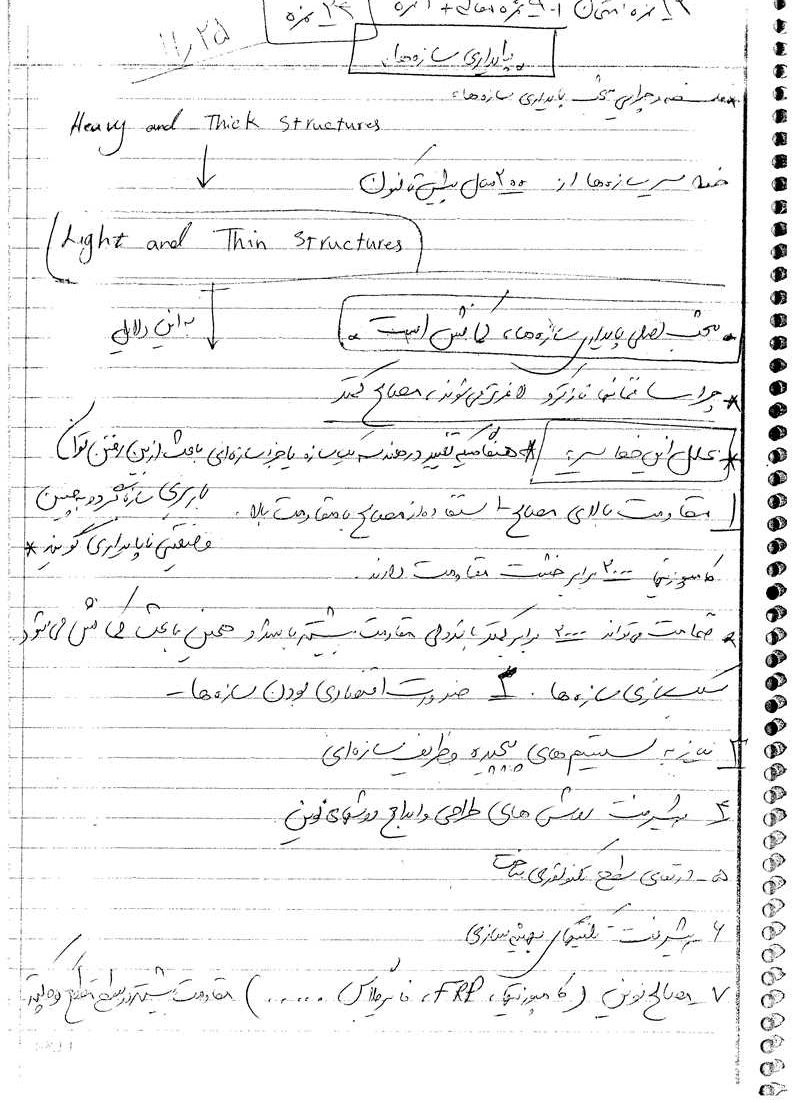 ۱۲ نمره امتحان
۲۴ نمره
۱۱,۲۵
پایداری سازه‌ها
* فلسفه و چرایی بحث پایداری سازه‌ها:
Heavy and Thick Structures
خط سیر سازه‌ها از ۲۰۰ سال پیش تاکنون
Light and Thin Structures
به این دلایل
* بحث اصلی پایداری سازه‌ها، کمانش است.
* چرا ساختمانها نازکتر و لاغرتر می‌شوند، مصالح کمتر
* علل این خط سیر:
* هنگامیکه تغییر در هندسه یک سازه یا جزء سازه‌ای باعث از بین رفتن توان
باربری سازه گردد به چنین
وضعیتی ناپایداری گویند *
۱ مقاومت بالای مصالح - استفاده از مصالح با مقاومت بالا.
کامپوزیتها ۲۰۰۰ برابر خشت مقاومت دارند.
* ضخامت می‌تواند ۲۰۰۰ برابر کمتر باشد ولی مقاومت بیشتر باشد و همین باعث کمانش می‌شود
سبکسازی سازه‌ها. ۲ ضرورت اقتصادی بودن سازه‌ها -
۳ نیاز به سیستم‌های پیچیده و ظریف سازه‌ای
۴ پیشرفت روش های طراحی و ابداع روشهای نوین
۵ - ارتقای سطح تکنولوژی ساخت
۶ پیشرفت تکنیکهای بهینه سازی
۷ - مصالح نوین (کامپوزیتها، FRP، فایبرگلاس ......) مقاومت بیشتر و سطح مقطع کوچکتر